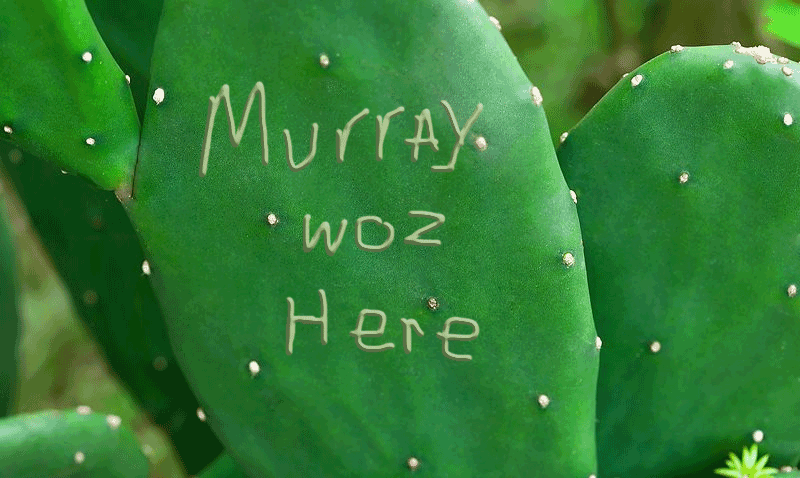 Murray
woz
Here